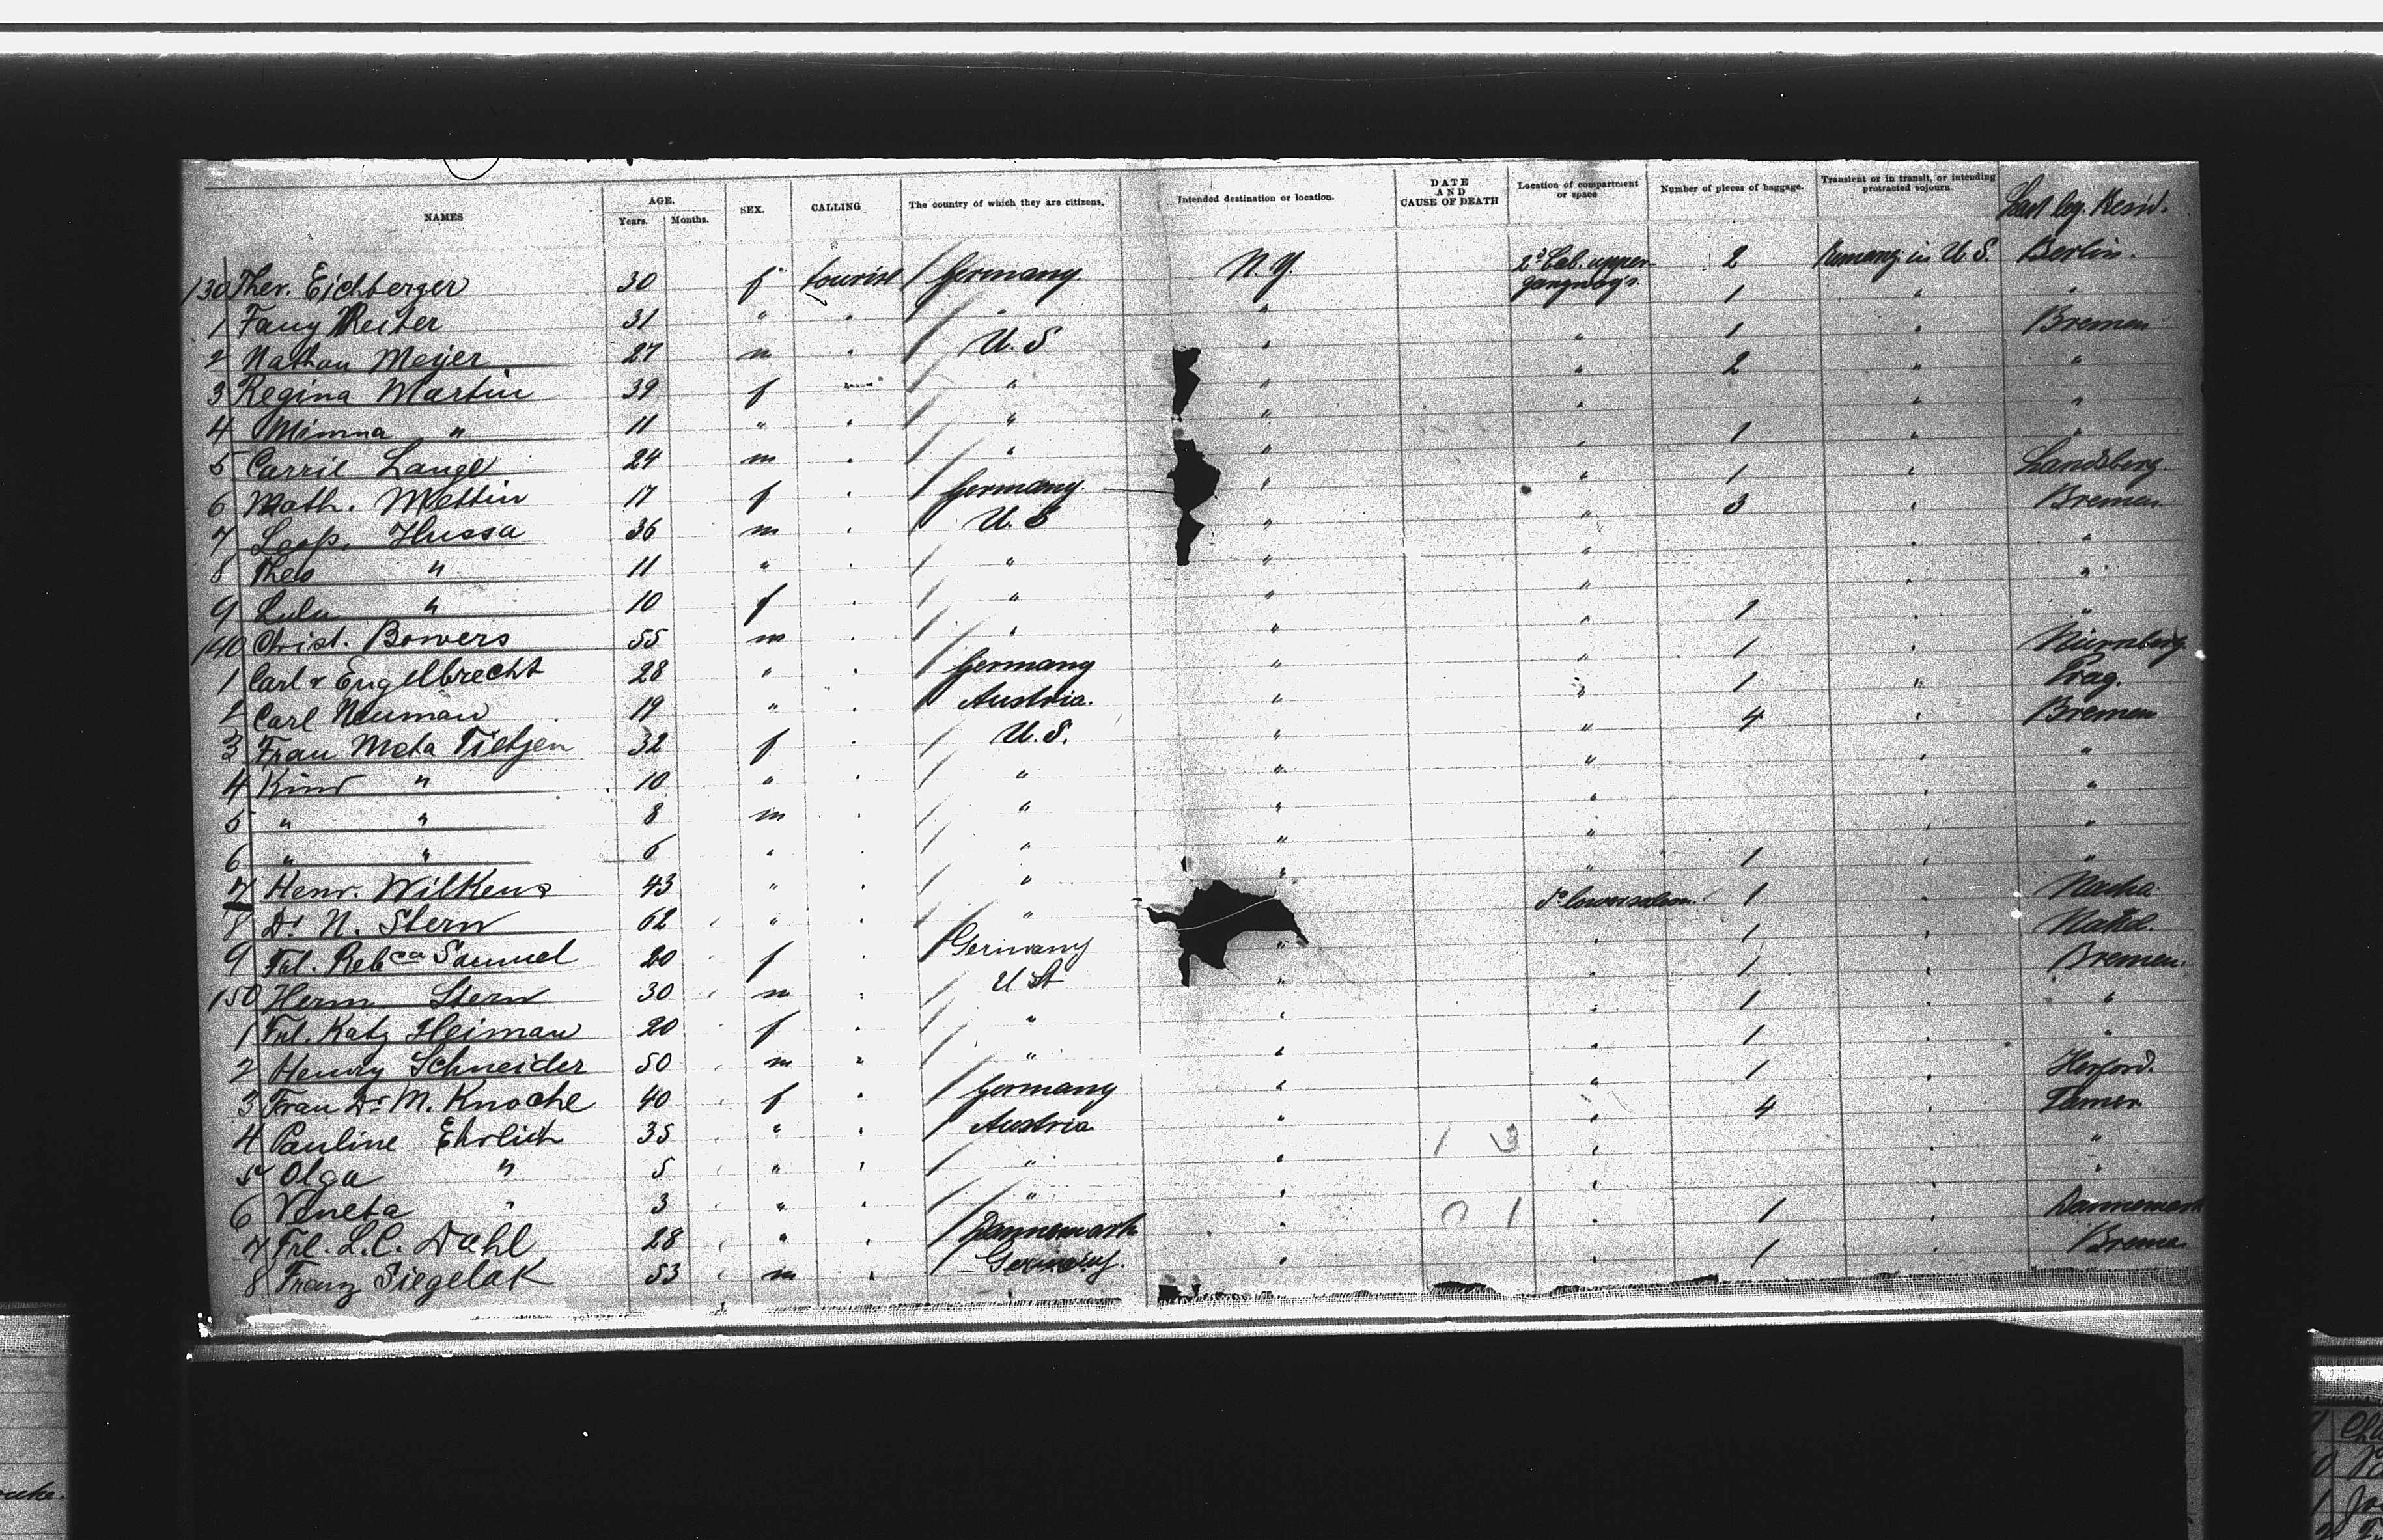 NAMES AGE. Years. Months. SEX. CALLING The country of which they are citizens. Intended destination or location. DATE AND CAUSE OF DEATH Location of compartment or space Number of pieces of baggage. Transient or in transit, or intending protracted sojourn. Last leg. Resid.
130 Ther. Eichberger 30 f tourist / Germany N.Y. 2d Cab. upper gangway's 2 in U.S. Berlin.
1 Fany Reiter 31 " " / " " 1 " "
2 Nathan Meyer 27 m " / U.S " " 1 " Bremen
3 Regina Martin 39 f / " " " 2 " "
4 Minna " 11 " " / " " " " "
5 Carrie Lange 24 m " / " " " 1 " "
6 Math. Mettin 17 f " / Germany. " " 1 " Landsberg
7 Leop. Hussa 36 m " / U.S " " 3 " Bremen
8 Theo " 11 " " / " " " " "
9 Lulu " 10 f " / " " " " "
140 Christ. Bowers 55 m " / " " " 1 " "
1 Carl v Engelbrecht 28 " " / Germany " " 1 " Nürnberg
2 Carl Neuman 19 " " / Austria. " " 1 " Prag.
3 Frau Meta Tietjen 32 f " / U.S. " " 4 " Bremen
4 Kind " 10 " " / " " " " "
5 " " 8 m " / " " " " "
6 " " 6 " " / " " " " "
7 Henr. Wilkens 43 " " / " " " 1 " "
8 Dr. N. Stern 62 " " / " do lower saloon. 1
9 Frl. Rebca Samuel 20 f / Germany " " 1 " Nakel.
150 Herm. Stern 30 m " / U St " " 1 " Bremen.
1 Frl. Katz Heiman 20 f " / " " " 1 " "
2 Henry Schneider 50 m " / " " " 1 " "
3 Frau Dr. M. Knoche 40 f " / Germany " " 1 " Herford.
4 Pauline Ehrlich 35 " " / Austria " 1 3 " 4 "
5 Olga " 5 " " / " " " " "
6 Veneta " 3 " " / " " 0 1 " " "
7 Frl. L.C. Dahl 28 " " / Dannemark " " 1 " Dannemark
8 Franz Siegelak 53 m " / Germany. " " 1 " Bremen